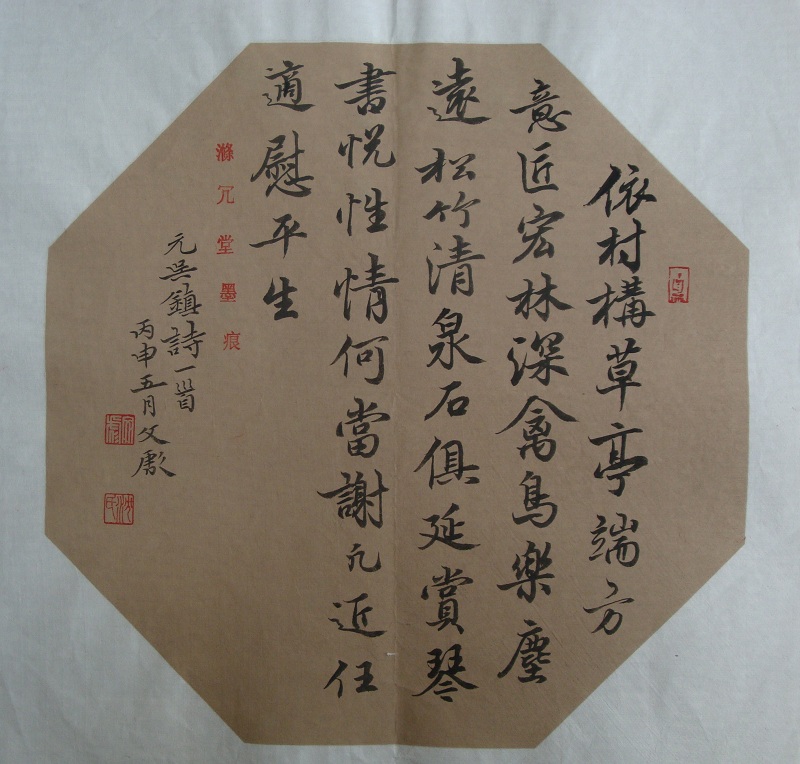 依村構草亭端方
意匠宏林深禽鳥樂塵
遠松竹清泉石俱延賞琴
書悅性情何當謝凢近任
適慰平生
滌冗堂墨痕
元吳鎮詩一首
丙申五月文